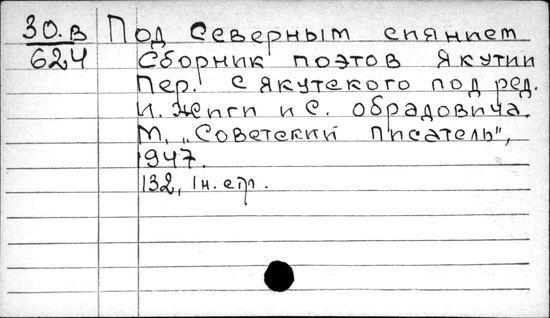 30.В Под Северным сиянием
624 Сборник поэтов Якутии
Пер. с якутского под ред.
И. Женги и С. Обрадовича.
М., „Советский писатель",
1947.
132, 1н. стр.